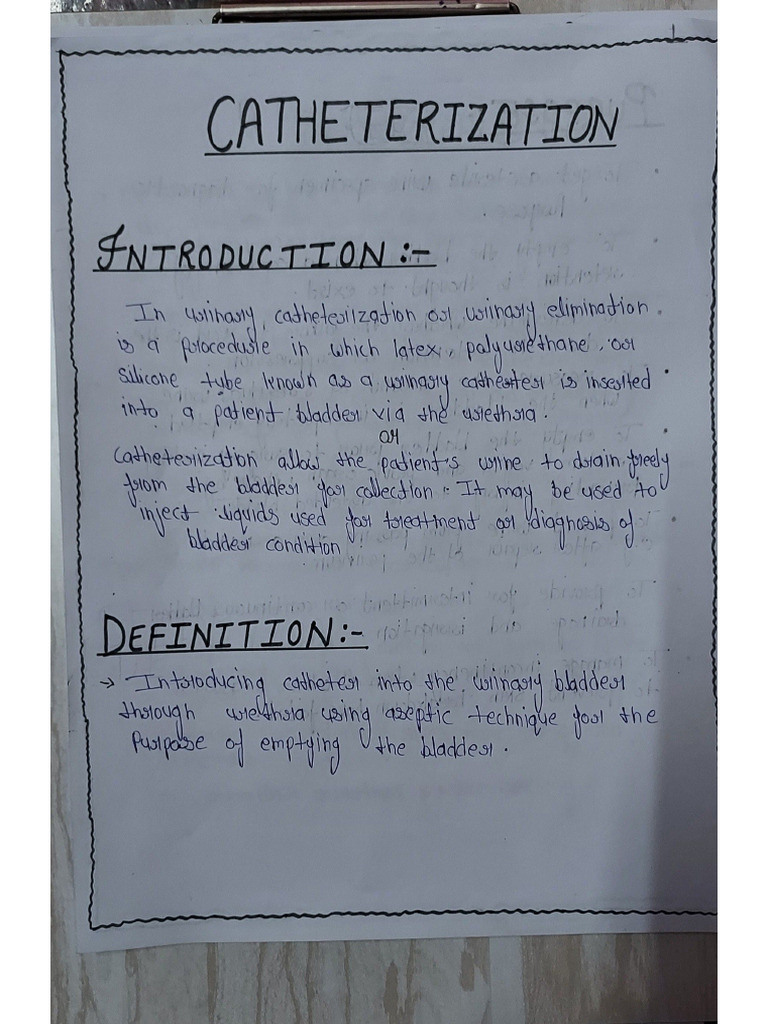 CATHETERIZATION
INTRODUCTION :-
In urinary catheterization or urinary elimination
is a procedure in which latex, polyurethane, or
silicone tube known as a urinary catheter is inserted
into a patient bladder via the urethra.
or
Catheterization allow the patient's urine to drain freely
from the bladder for collection. It may be used to
inject liquids used for treatment or diagnosis of
bladder condition.
DEFINITION:-
→ Introducing catheter into the urinary bladder
through urethra using aseptic technique for the
Purpose of emptying the bladder.